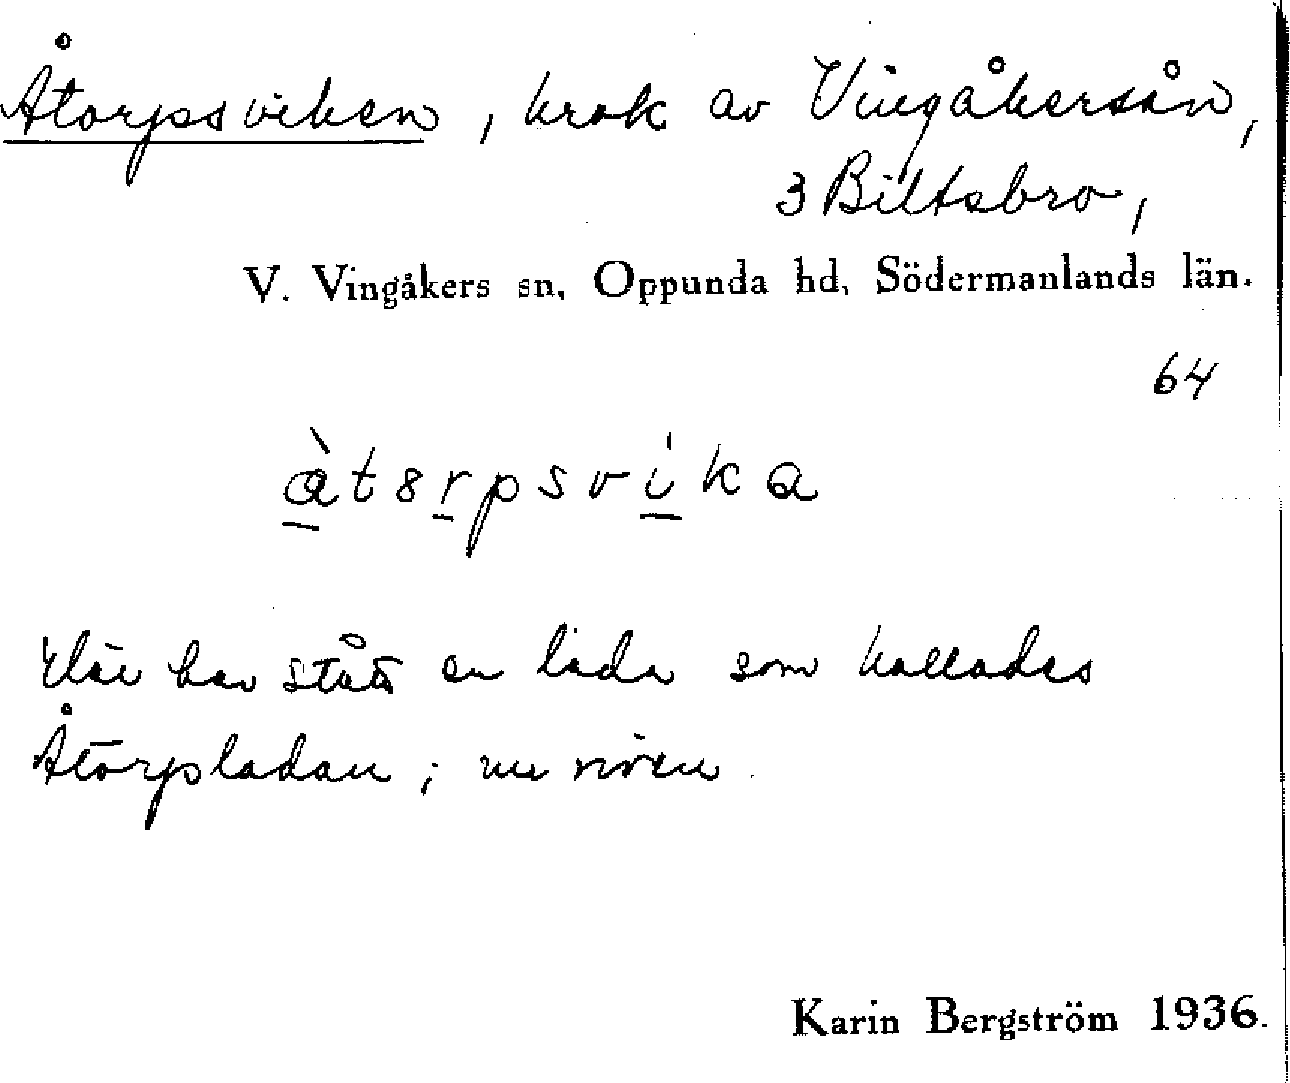 Åtorpsviken, krok av Vingåkersån,
3 Biltsbro,
V. Vingåkers sn, Oppunda hd, Södermanlands län.
64
àtɘrpsvika
Här har stått en lada som kallades
Åtorpladan; nu riven.
Karin Bergström 1936.